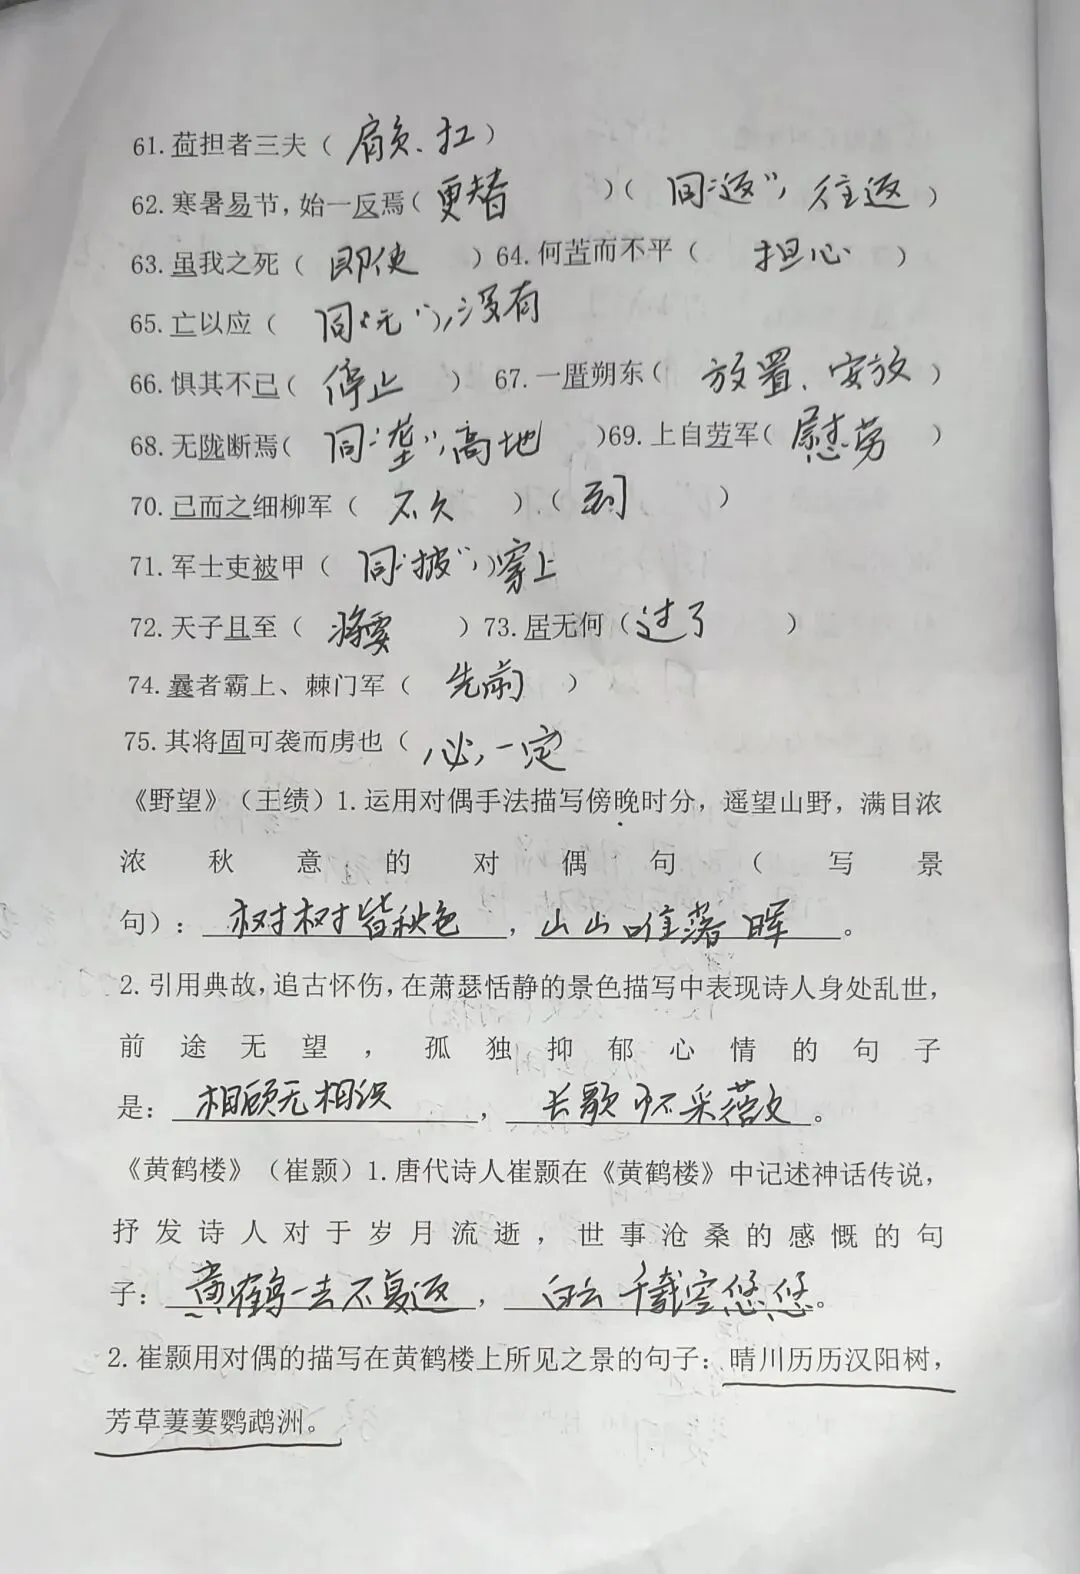 61.荷担者三夫（肩负、扛）
62.寒暑易节，始一反焉（更替）（同“返”，往返）
63.虽我之死（即使）64.何苦而不平（担心）
65.亡以应（同“无”），没有
66.惧其不已（停止）67.一厝朔东（放置、安放）
68.无陇断焉（同“垄”，高地）69.上自劳军（慰劳）
70.已而之细柳军（不久）（到）
71.军士吏被甲（同“披”，）穿上
72.天子且至（将要）73.居无何（过了）
74.曩者霸上、棘门军（先前）
75.其将固可袭而虏也（必，一定
《野望》（王绩）1.运用对偶手法描写傍晚时分，遥望山野，满目浓
浓秋意的对偶句（写景
句）：树树皆秋色，山山唯落晖。
2.引用典故，追古怀伤，在萧瑟恬静的景色描写中表现诗人身处乱世，
前途无望，孤独抑郁心情的句子
是：相顾无相识，长歌怀采薇。
《黄鹤楼》（崔颢）1.唐代诗人崔颢在《黄鹤楼》中记述神话传说，
抒发诗人对于岁月流逝，世事沧桑的感慨的句
子：黄鹤一去不复返，白云千载空悠悠。
2.崔颢用对偶的描写在黄鹤楼上所见之景的句子：晴川历历汉阳树，
芳草萋萋鹦鹉洲。